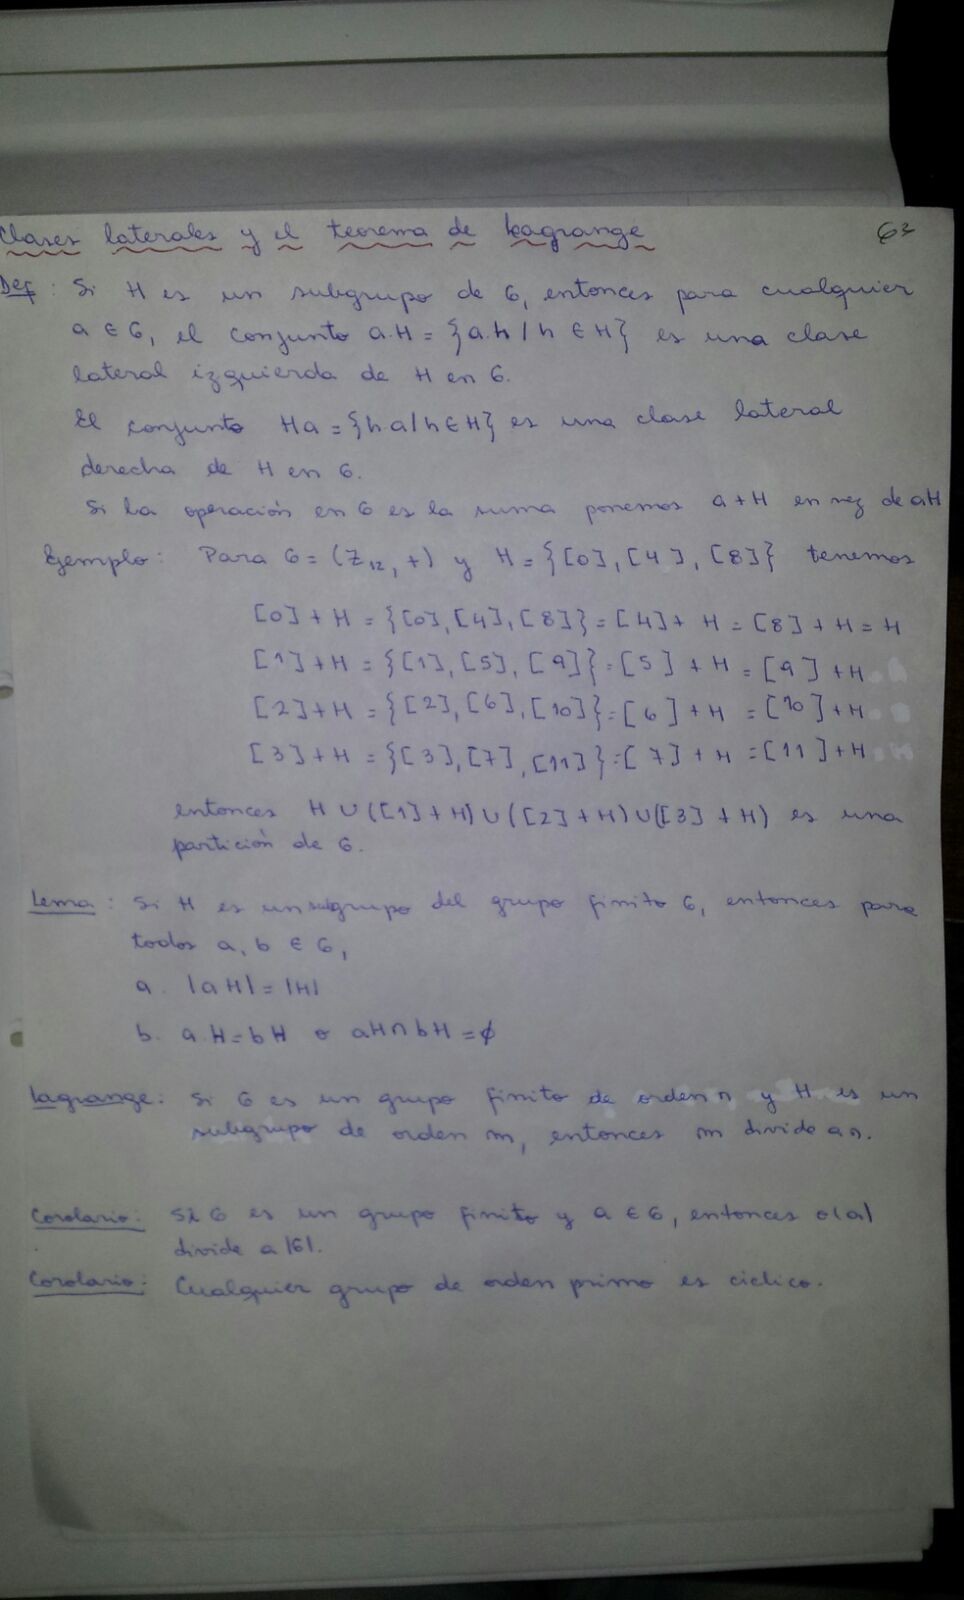 Clases laterales y el teorema de Lagrange 63
Def: Si H es un subgrupo de G, entonces para cualquier
a ∈ G, el conjunto a.H = {a.h / h ∈ H} es una clase
lateral izquierda de H en G.
El conjunto Ha = {ha/h ∈ H} es una clase lateral
derecha de H en G.
Si la operación en G es la suma ponemos a+H en vez de aH
Ejemplo: Para G = (Z₁₂, +) y H = {[0], [4], [8]} tenemos
[0] + H = {[0], [4], [8]} = [4] + H = [8] + H = H
[1] + H = {[1], [5], [9]} = [5] + H = [9] + H.
[2] + H = {[2], [6], [10]} = [6] + H = [10] + H.
[3] + H = {[3], [7], [11]} = [7] + H = [11] + H.
entonces H ∪ ([1] + H) ∪ ([2] + H) ∪ ([3] + H) es una
partición de G.
Lema: Si H es un subgrupo del grupo finito G, entonces para
todos a, b ∈ G,
a. |aH| = |H|
b. a.H = bH o aH ∩ bH = ∅
Lagrange: Si G es un grupo finito de orden n y H es un
subgrupo de orden m, entonces m divide a n.
Corolario: Si G es un grupo finito y a ∈ G, entonces o(a)
divide a |G|.
Corolario: Cualquier grupo de orden primo es ciclico.